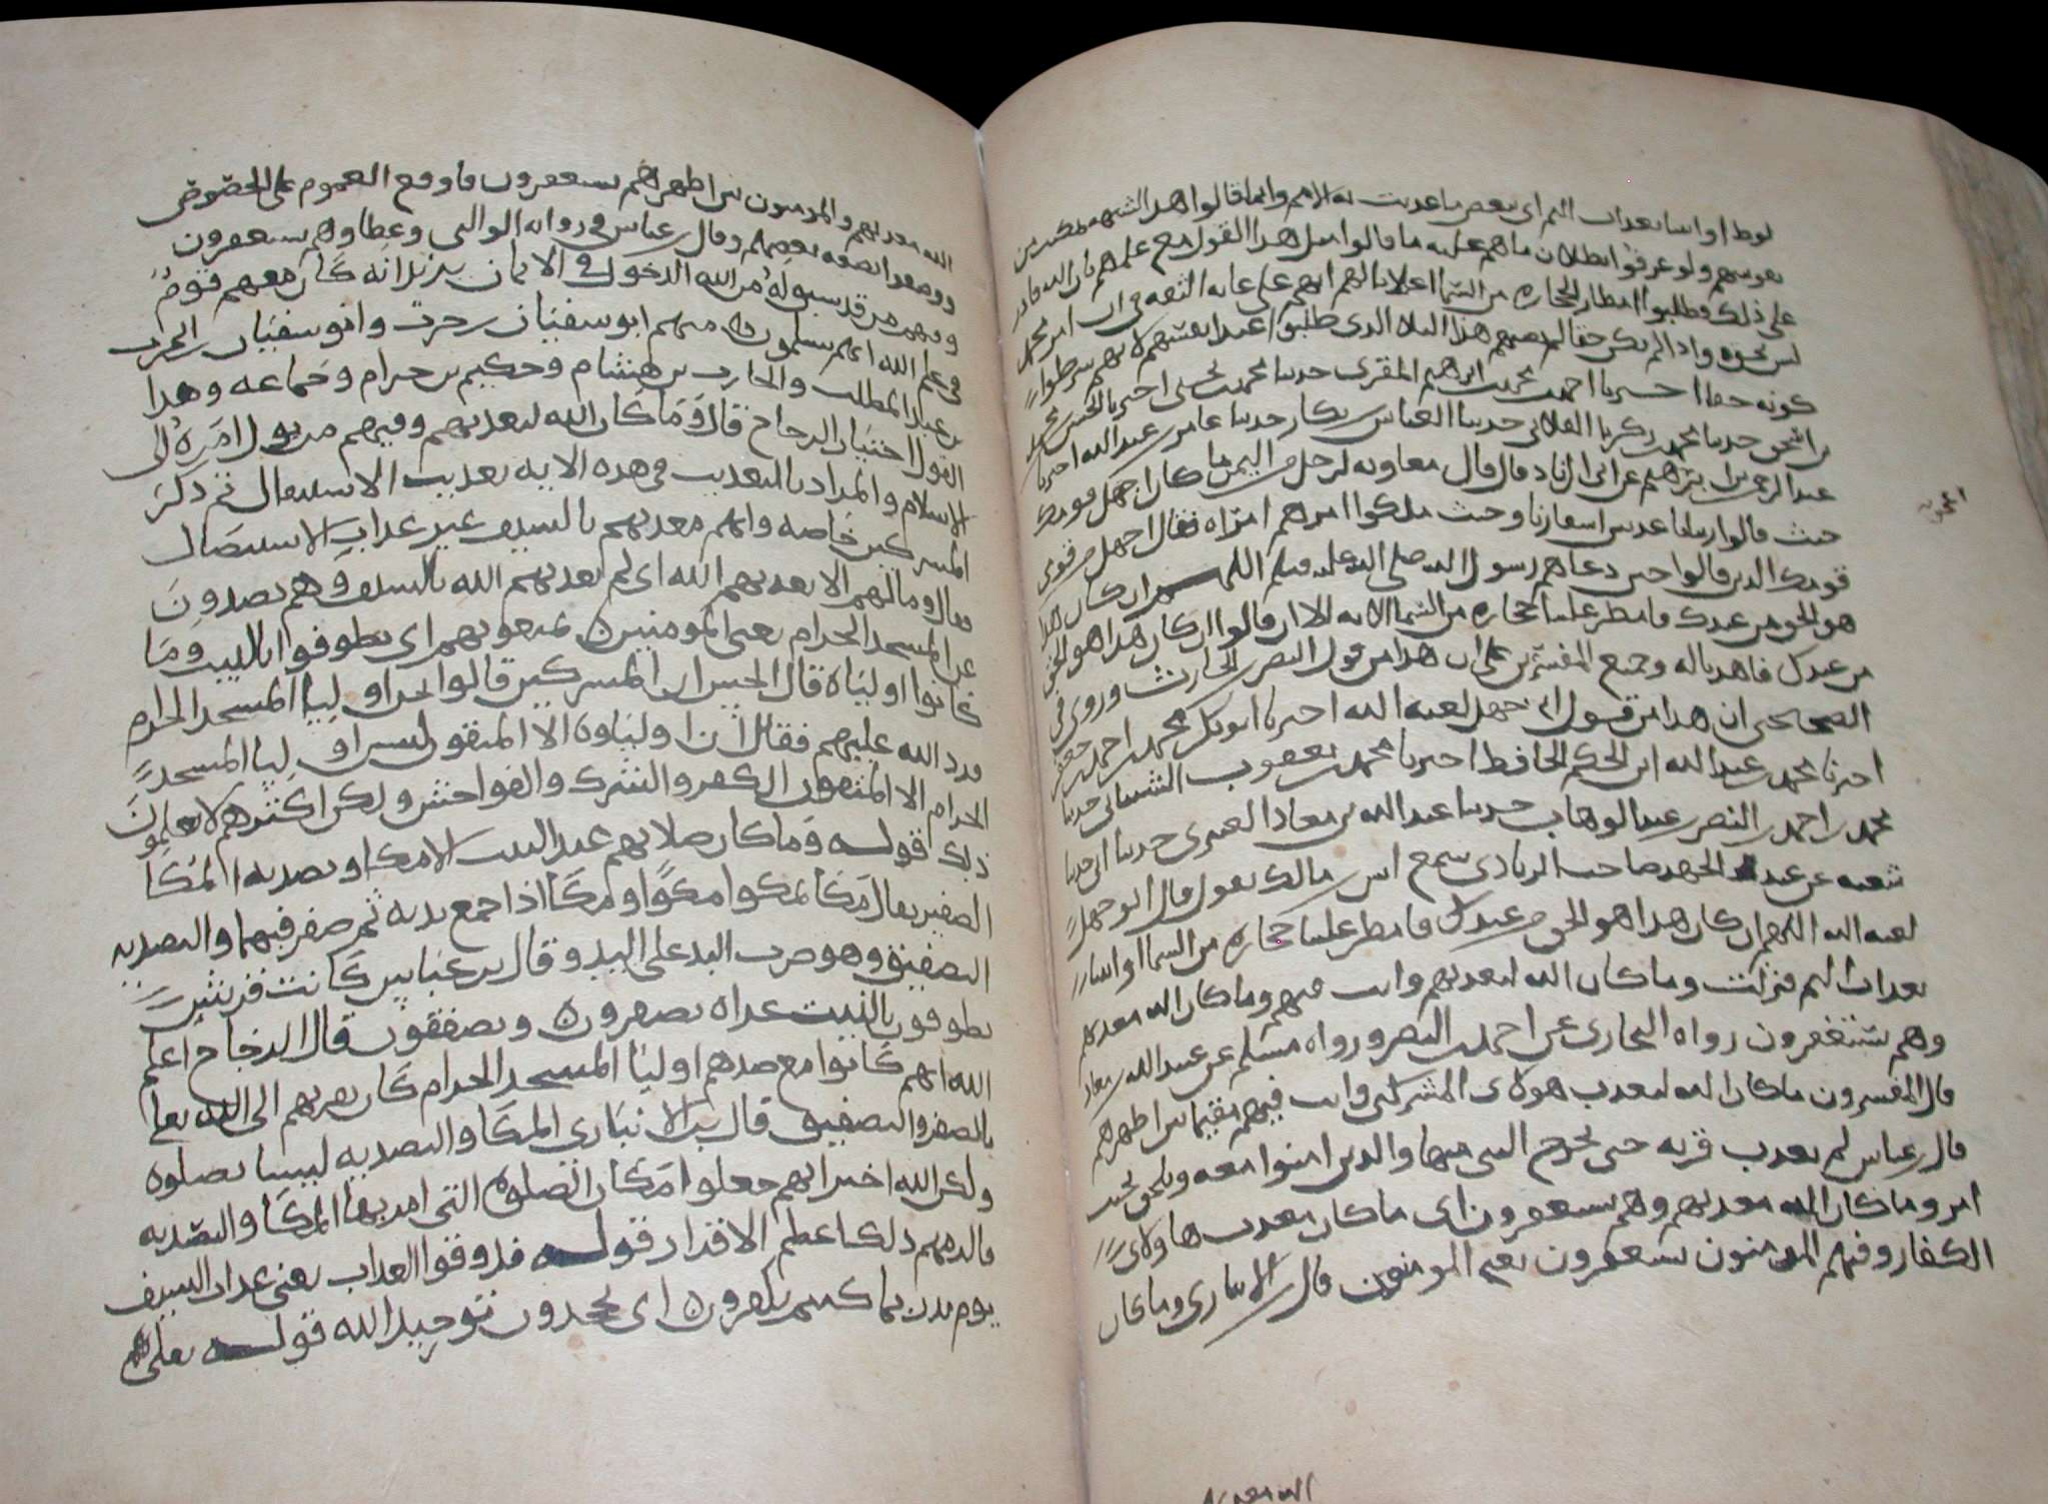 لوط او اىىىا بعداب اليم اى ببعض ما عذبت به الامم وانما قالوا هذا لشبهه تمكنت من
نفوسهم ولو عرفوا بطلان ما هم عليه ما قالوا مثل هذا القول مع علمهم بان الله قادر
على ذلك وطلبوا امطار الحجاره من السما اعلاما لهم انهم على غايه الثقه فى ان امر محمد
ليس بحق واذا لم يكن حقا لم يصبهم هذا البلاء الذى طلبوا عند انفسهم لانهم شرطوا
كونه حقا اخبرنا احمد بن محمد بن ابرهيم المقرى حدثنا محمد بن اخبرنا الحسن بن محمد
بن اسحق حدثنا محمد بن زكريا الغلابى حدثنا العباس بن بكار حدثنا عامر بن عبد الله اخبرنا
عبد الرحمن بن ابرهيم عن ابى الزناد قال قال معاويه لرجل من اليمن ما كان اجهل قومك
حيث قالوا ربنا باعد بين اسفارنا وحيث ملكوا امرهم امراه فقال اجهل من قومى
قومك الذين قالوا حين دعاهم رسول الله صلى الله عليه وسلم اللهم ان كان هذا
هو الحق من عندك فامطر علينا حجاره من السما الايه الا ان قالوا ان كان هذا هو الحق
من عندك فاهدنا له وجميع المفسرين على ان هذا من قول النضر بن الحارث وروى فى
الصحيحين ان هذا من قول ابى جهل لعنه الله اخبرنا ابو بكر محمد بن احمد بن جعفر
اخبرنا محمد بن عبد الله ابن الحكم الحافظ اخبرنا محمد بن يعقوب الشيبانى حدثنا
محمد بن احمد بن النضر بن عبد الوهاب حدثنا عبد الله بن معاذ العنبرى حدثنا ابى حدثنا
شعبه عن عبد الحميد صاحب الزيادى سمع انس بن مالك يقول قال ابو جهل
لعنه الله اللهم ان كان هذا هو الحق من عندك فامطر علينا حجاره من السما او ايتنا
بعذاب اليم فنزلت وما كان الله ليعذبهم وانت فيهم وما كان الله معذبهم
وهم يستغفرون رواه البخارى عن احمد بن النضر ورواه مسلم عن عبيد الله بن معاذ
قال المفسرون ما كان الله ليعذب هولاى المشركين وانت فيهم مقيم بين اظهرهم
قال بن عباس لم يعذب قريه حتى يخرج النبى منها والذين امنوا معه ويلحق بحيث
امر وما كان الله معذبهم وهم يستغفرون اى ما كان معذب هاولاى
الكفار وفيهم المومنون يستغفرون يعنى المومنين قال بن الانبارى وما كان
الله معذبهم والمومنون بين اظهرهم يستغفرون فاوقع العموم على الخصوص
ووصفوا بصفه بعضهم وقال بن عباس فى روايه الوالبى وعطا وهم يستغفرون
وفيهم من قد سبق له من الله الدخول فى الايمان يريد انه كان معهم قوم
فى علم الله انهم يسلمون منهم ابو سفيان بن حرب وابو سفيان بن الحرث
بن عبد المطلب والحارث بن هشام وحكيم بن حزام وجماعه وهذا
القول اختيار الزجاج قال وما كان الله ليعذبهم وفيهم من يول امره الى
الاسلام والمراد بالتعذيب فى هذه الايه تعذيب الاستيصال ثم ذكر
المشركين خاصه وانهم معذبهم بالسيف غير عذاب الاستيصال
فقال وما لهم الا يعذبهم الله اى لم يعذبهم الله بالسيف وهم يصدون
عن المسجد الحرام يعنى المومنين يمنعونهم اى يطوفوا بالبيت وما
كانوا اولياه قال الحسن ان المشركين قالوا نحن اوليا المسجد الحرام
فرد الله عليهم فقال ان اولياوه الا المتقون ليس اوليا المسجد
الحرام الا المتقون الكفر والشرك والفواحش ولكن اكثرهم لا يعلمون
ذلك قوله وما كان صلاتهم عند البيت الا مكا وتصديه المكا
الصفير يقال مكا يمكوا مكوا ومكا اذا جمع يديه ثم صفر فيهما والتصديه
التصفيق وهو ضرب اليد على اليد وقال بن عباس كانت قريش
يطوفون بالبيت عراه يصفرون ويصفقون قال الزجاج اعلم
الله انهم كانوا مع صدهم اوليا المسجد الحرام كان تقربهم الى الله تعالى
بالصفير والتصفيق قال بن الانبارى المكا والتصديه ليسا بصلوه
ولكن الله اخبر انهم جعلوا مكان الصلوه التى امر بها المكا والتصديه
فالزمهم ذلك اعظم الاقدار قوله فذوقوا العذاب يعنى عذاب السيف
يوم بدر بما كنتم تكفرون اى تجحدون توحيد الله قوله تعالى
الله معذبهم